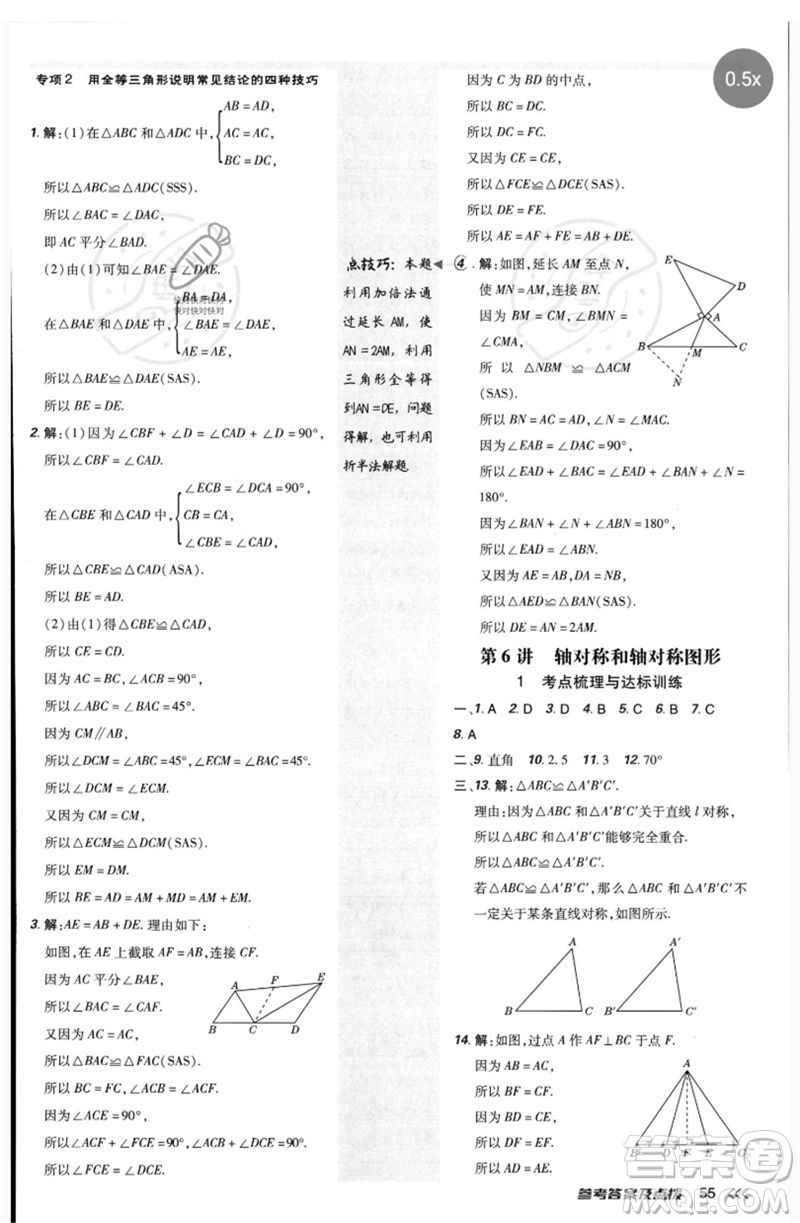 专项2 用全等三角形说明常见结论的四种技巧
1. 解:(1)在△ABC 和△ADC 中,
AB = AD,
AC = AC,
BC = DC,
所以△ABC≌△ADC(SSS).
所以∠BAC = ∠DAC,
即 AC 平分∠BAD.
(2)由(1)可知∠BAE = ∠DAE.
在△BAE 和△DAE 中,
BA = DA,
∠BAE = ∠DAE,
AE = AE,
所以△BAE≌△DAE(SAS).
所以 BE = DE.
2. 解:(1)因为∠CBF + ∠D = ∠CAD + ∠D = 90°,
所以∠CBF = ∠CAD.
在△CBE 和△CAD 中,
∠ECB = ∠DCA = 90°,
CB = CA,
∠CBE = ∠CAD,
所以△CBE≌△CAD(ASA).
所以 BE = AD.
(2)由(1)得△CBE≌△CAD,
所以 CE = CD.
因为∠ACB = 90°,BC = AC,
所以∠BAC = ∠ABC = 45°.
因为 CM∥AB,
所以∠DCM = ∠ABC = 45°,∠ECM = ∠BAC = 45°.
所以∠DCM = ∠ECM.
又因为 CM = CM,
所以△ECM≌△DCM(SAS).
所以 EM = DM.
所以 BE = AD = AM + MD = AM + EM.
3. 解:AE = AB + DE. 理由如下:
如图,在 AE 上截取 AF = AB,连接 CF.
因为 AC 平分∠BAE,
所以∠BAC = ∠FAC.
又因为 AC = AC,
所以△BAC≌△FAC(SAS).
所以 BC = FC,∠ACB = ∠ACF.
因为∠ACE = 90°,
所以∠ACF + ∠FCE = 90°,∠ACB + ∠DCE = 90°.
所以∠FCE = ∠DCE.
A F E
B C D
因为 C 为 BD 的中点,
所以 BC = DC.
所以 DC = FC.
又因为 CE = CE,
所以△FCE≌△DCE(SAS).
所以 DE = FE.
所以 AE = AF + FE = AB + DE.
点技巧:本题
利用加倍法通
过延长 AM,使
AN = 2AM,利用
三角形全等得
到AN = DE,问题
得解,也可利用
折半法解题.
4. 解:如图,延长 AM 至点 N,
使 MN = AM,连接 BN.
因为 BM = CM,∠BMN =
∠CMA,
所以△NBM≌△ACM
(SAS).
所以 BN = AC = AD,∠N = ∠MAC.
因为∠EAB = ∠DAC = 90°,
所以∠EAD + ∠BAC = 180°.
所以∠EAD + ∠BAN + ∠N =
180°.
因为∠ABN + ∠N + ∠BAN = 180°,
所以∠EAD = ∠ABN.
又因为 AE = AB,
所以△AED≌△BAN(SAS).
所以 DE = AN = 2AM.
E
D
A
B M C
N
第 6 讲 轴对称和轴对称图形
1 考点梳理与达标训练
一、1. A 2. D 3. D 4. B 5. B 6. B 7. C
8. A
二、9. 直角 10. 2. 5 11. 3 12. 70°
三、13. 解:△ABC≌△A′B′C′.
理由:因为△ABC 和△A′B′C′关于直线 l 对称,
所以△ABC 和△A′B′C′能够完全重合.
所以△ABC≌△A′B′C′.
若△ABC≌△A′B′C′,则△ABC 和△A′B′C′不
一定关于某条直线对称,如图所示.
A A′
B C B′ C′
14. 解:如图,过点 A 作 AF⊥BC 于点 F.
因为 AB = AC,
所以 BF = CF.
因为 AD = AE,
所以 DF = EF.
所以 BD = CE.
A
B D F E C
参考答案及点拨 55
0.5x
快对快对快对
快对快对快对